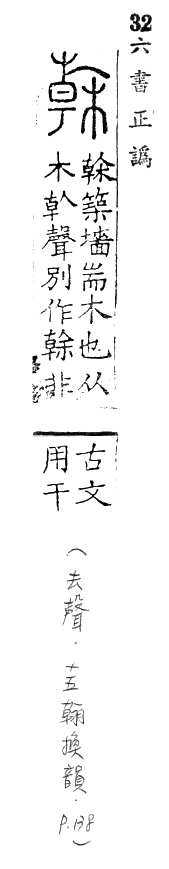 32六書正譌
榦
榦築墻耑木也从
木倝聲別作幹非
古文
用干
(去聲．十五翰換韻．P.138)